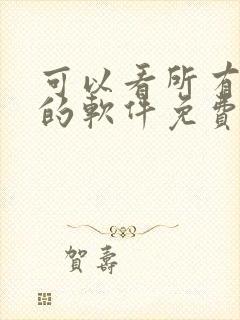 可以看所有
的軟件免費
賀壽